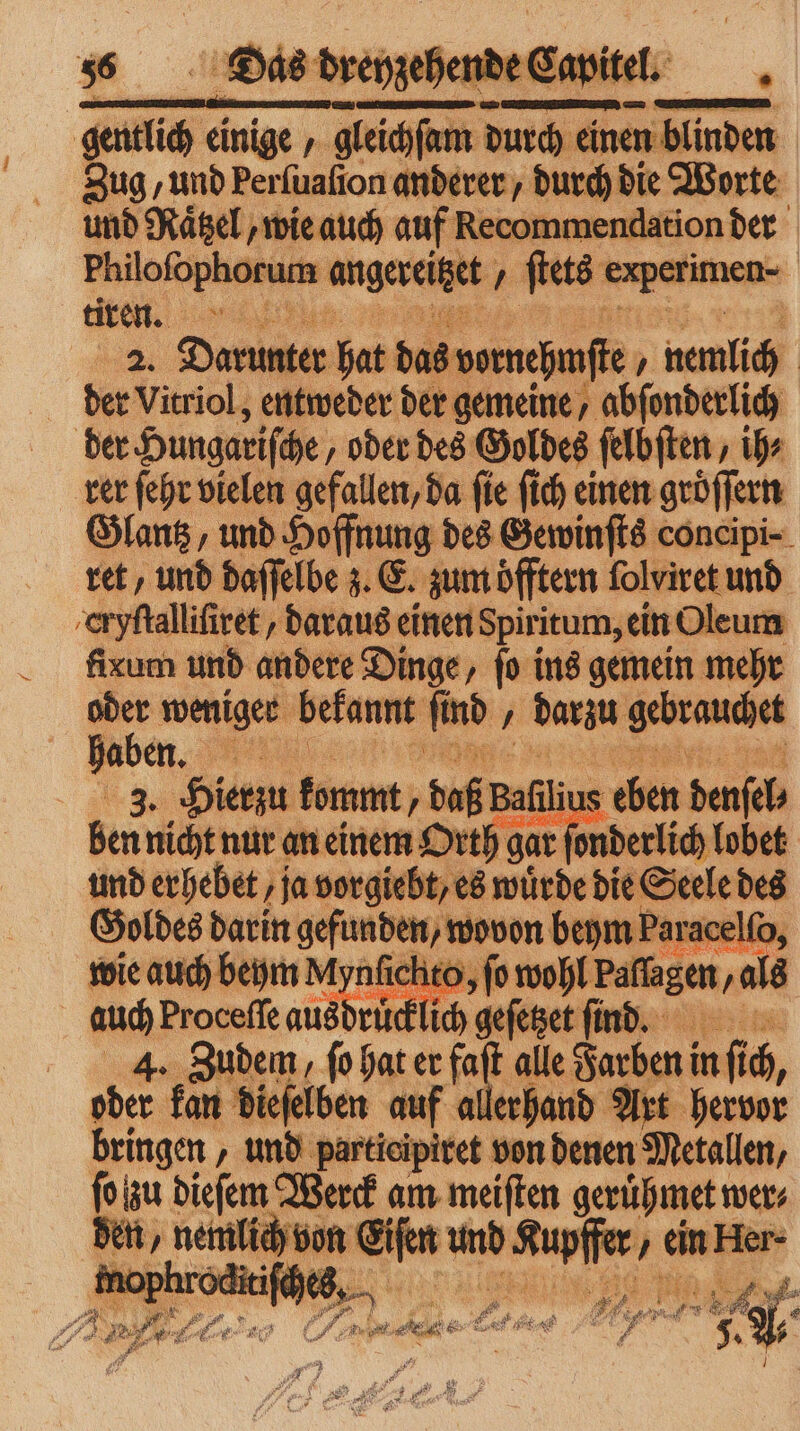 56 Das dreyzehende Capitel.
gentlich einige / gleichſam durch einen blinden
Zug / und Perſuaſion anderer / durch die Worte
und Raͤtzel / wie auch auf Recommendation der
Philoſophorum angereitzet / ſtets experimen-
tiren.
2. Darunter hat das vornehmſte / nemlich
der Vitriol, entweder der gemeine / abſonderlich
der Hungariſche / oder des Goldes ſelbſten / ih⸗
rer ſehr vielen gefallen / da ſie ſich einen groͤſſern
Glantz / und Hoffnung des Gewinſts concipi-
ret / und daſſelbe z. E. zum oͤfftern ſolviret und
cryſtalliſiret / daraus einen Spiritum, ein Oleum
fixum und andere Dinge / ſo ins gemein mehr
oder weniger bekannt ſind / darzu gebrauchet
haben.
3. Hierzu kommt / daß Baſilius eben denſel⸗
ben nicht nur an einem Orth gar ſonderlich lobet
und erhebet / ja vorgiebt / es wuͤrde die Seele des
Goldes darin gefunden / wovon beym Paracelſo,
wie auch beym Mynſichto, ſo wohl Paſſagen / als
auch Proceſſe ausdruͤcklich geſetzet ſind.
4. Zudem / ſo hat er faſt alle Farben in ſich,
oder kan dieſelben auf allerhand Art hervor
bringen / und participiret von denen Metallen /
ſo zu dieſem Werck am meiſten geruͤhmet wer⸗
den / nemlich von Eiſen und Kupffer / ein Her-
mophroditiſches.
5. A⸗